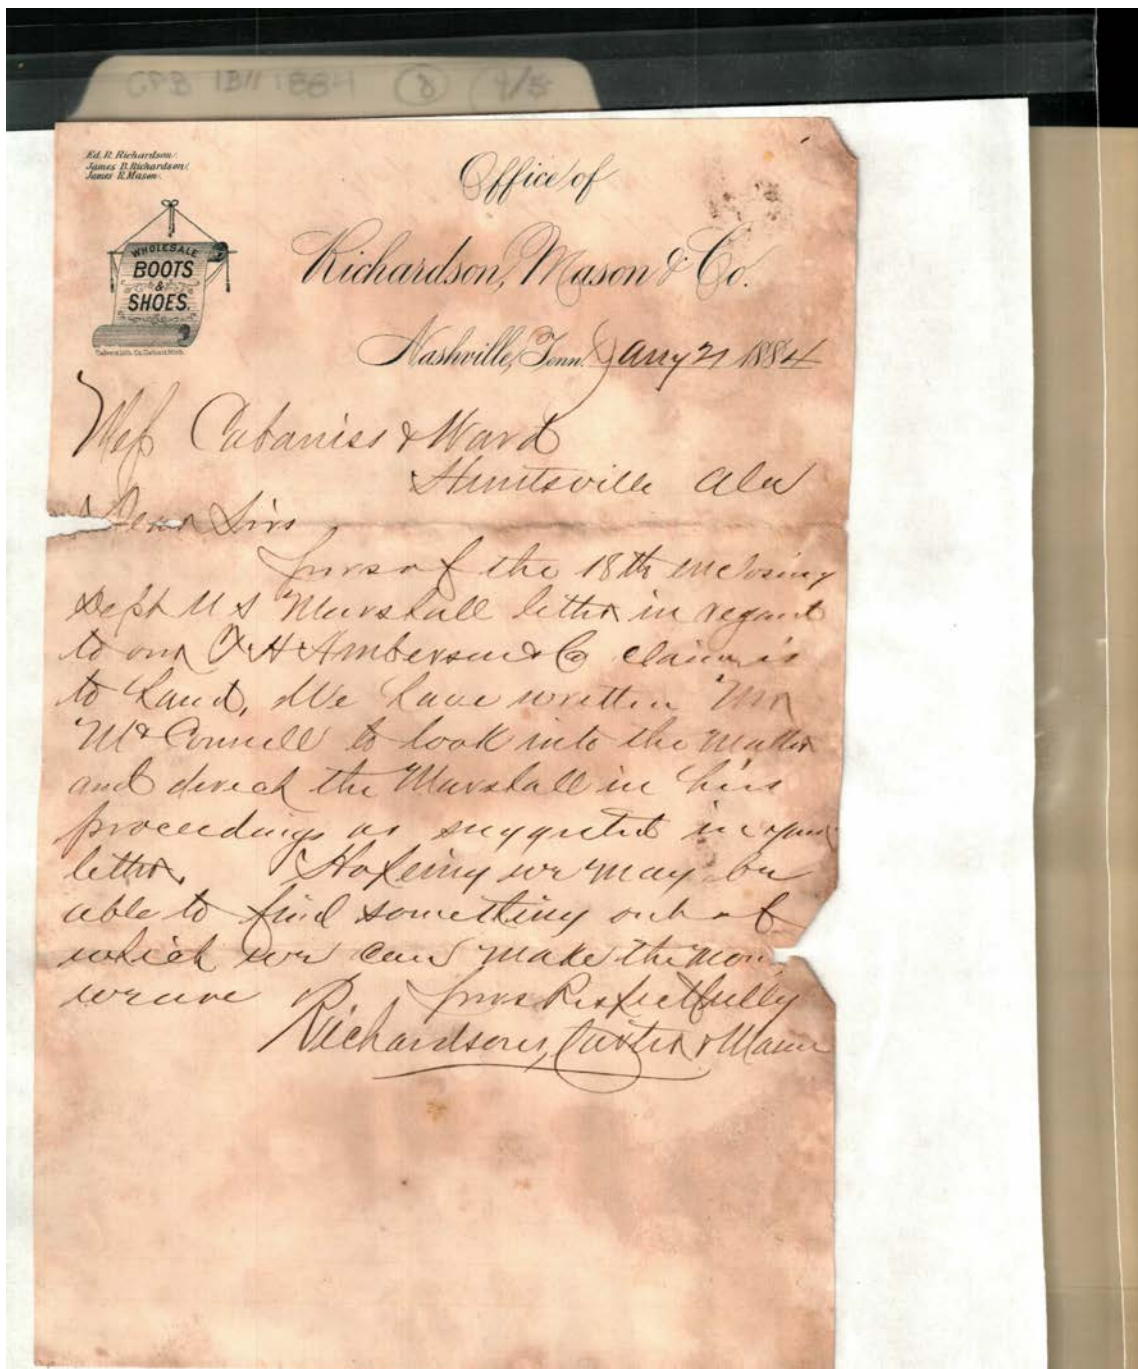 CPB 1311 1884 8 4/5
Ed. R. Richardson.
James B. Richardson.
James R. Mason.
Office of
WHOLESALE
BOOTS
&
SHOES.
Richardson, Mason & Co.
Nashville, Tenn. Jany 21 1884
Mess Cabaniss & Ward
Huntsville Ala
Dear Sirs
Yours of the 18th enclosing
Dept U S Marshall letter in regard
to our H Amberson & Co claim is
to hand. We have written Mr
McConnell to look into the matter
and direct the Marshall in his
proceedings as suggested in your
letter. Hopeing we may be
able to find something out of
which we can make the mon
we are Yours Respectfully
Richardson, Carter & Mason